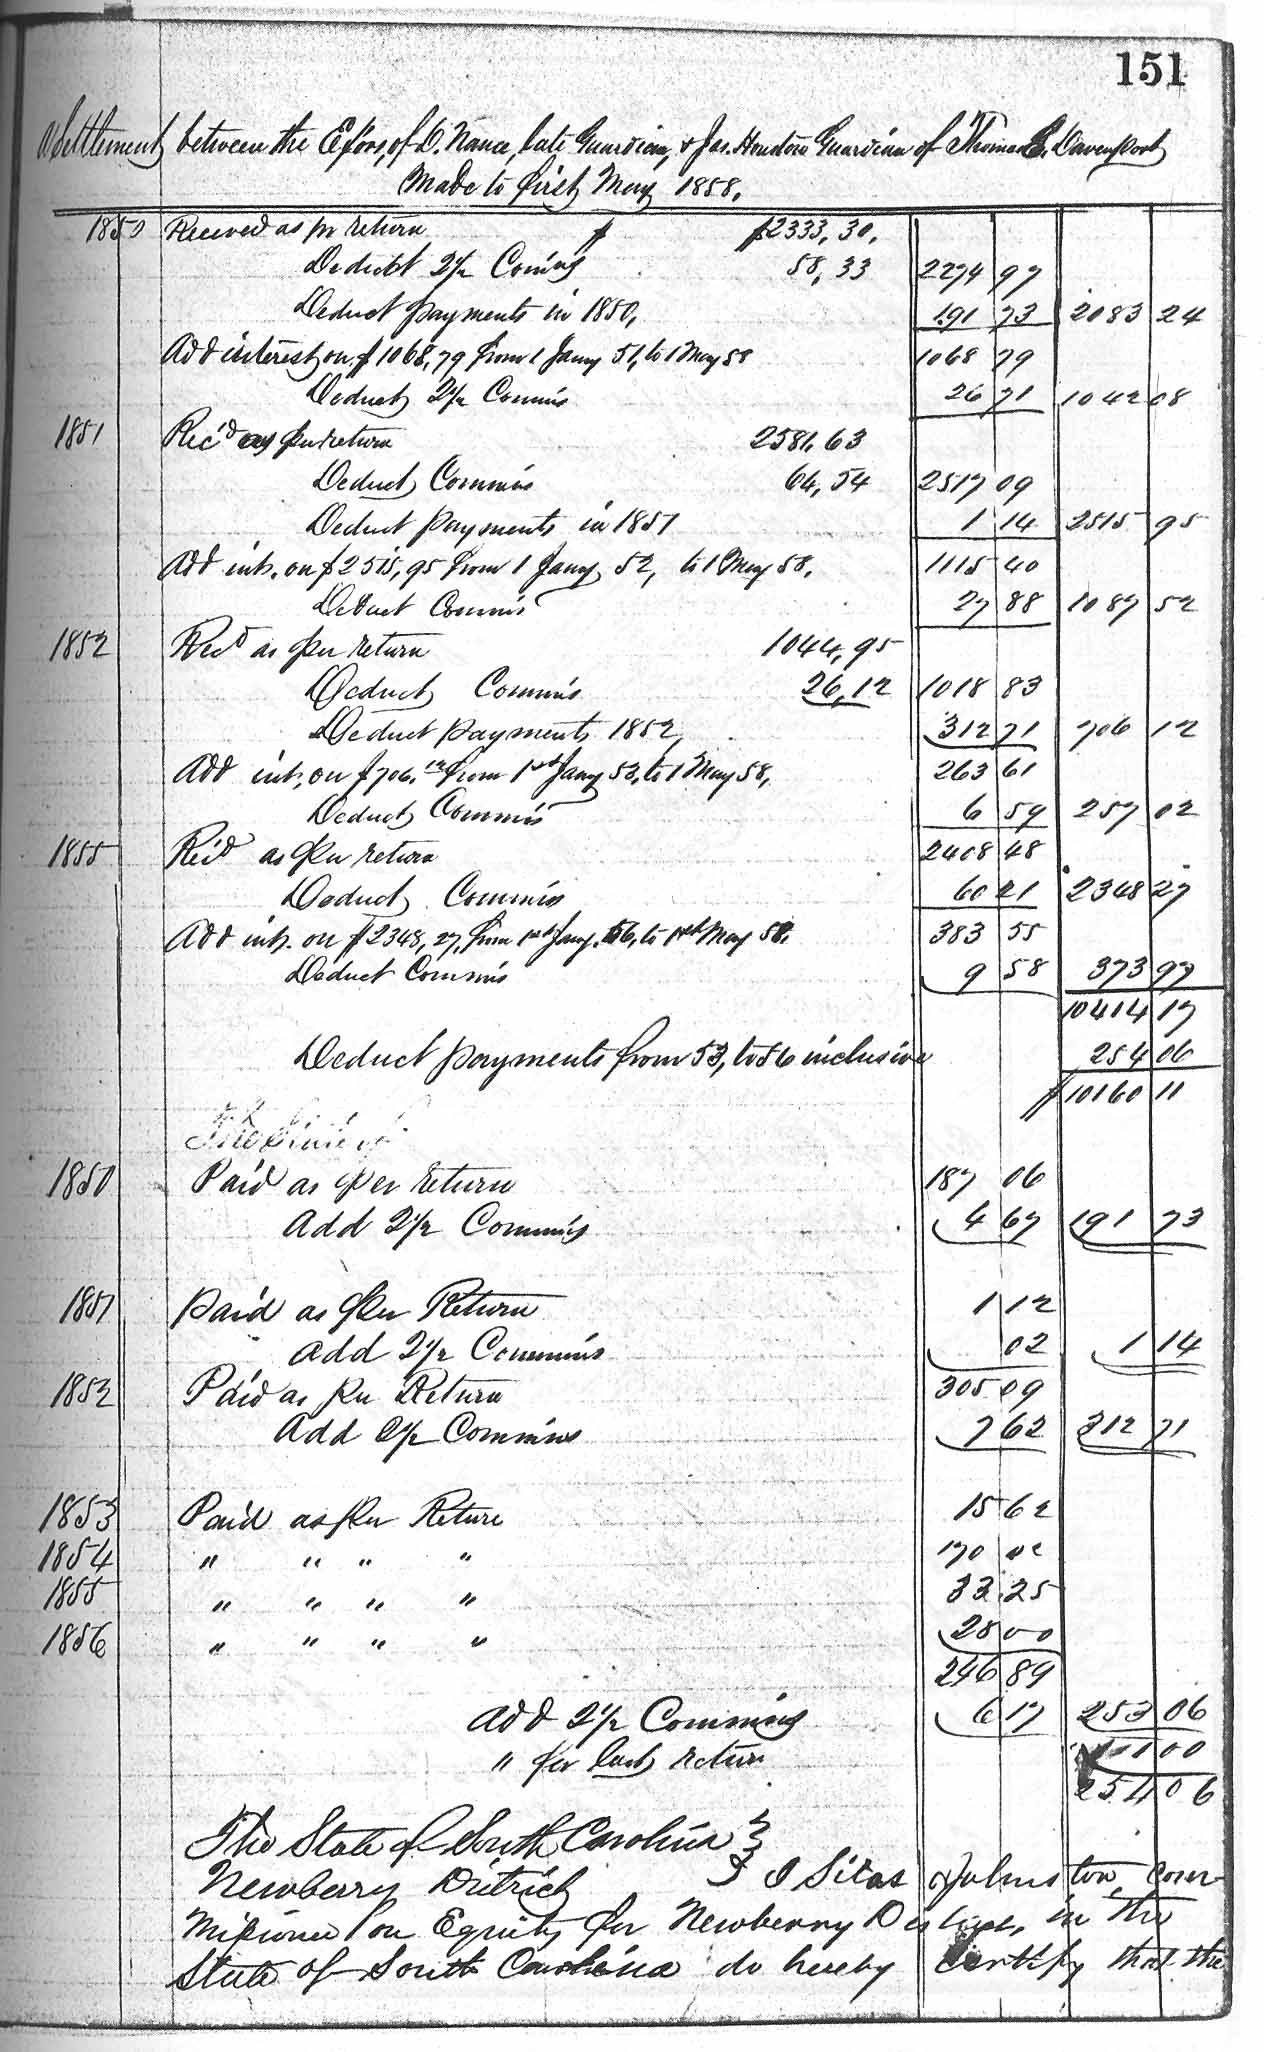 151
Settlement between the Exors, of D. Nance, late Guardian, & Jas. Houston Guardian of Thomas Davenport
Made to first May 1858.
1850 Received as pr return $ $2333,30,
Deduct 2½ Comms 58,33 2274 97
Deduct payments in 1850, 191 73 2083 24
Add interest on $1068,79 from 1 Jany 51, to 1 May 58 1068 79
Deduct 2½ Commis 26 71 1042 08
1851 Rec'd as per return 2581,63
Deduct Commis 64,54 2517 09
Deduct payments in 1851 1 14 2515 95
Add int. on $2515,95 from 1 Jany 52, to 1 May 58, 1115 40
Deduct Commis 27 88 1087 52
1852 Recd as per return 1044,95
Deduct Commis 26,12 1018 83
Deduct payments 1852, 312 71 706 12
Add int, on $706.12 from 1st Jany 53, to 1 May 58, 263 61
Deduct Commis 6 59 257 02
1855 Re'd as per return 2408 48
Deduct Commis 60 21 2348 27
Add int. on $2348,27, from 1st Jany. 56, to 1st May 58. 383 55
Deduct Commis 9 58 373 97
10414 17
Deduct payments from 53, to 56 inclusive 254 06
$10160 11
The State of
1850 Paid as per return 187 06
Add 2½ Commis 4 67 191 73
1851 Paid as per Return 1 12
Add 2½ Commis 02 1 14
1852 Paid as per Return 305 09
Add 2½ Commis 7 62 312 71
1853 Paid as per Return 15 62
1854 " " " " 170 02
1855 " " " " 33 25
1856 " " " " 28 00
246 89
Add 2½ Commis 6 17 253 06
" for last return 1 00
254 06
The State of South Carolina }
Newberry District } I Silas Johnston, Com-
missioner on Equity for Newberry District, in the
State of South Carolina do hereby Certify that the